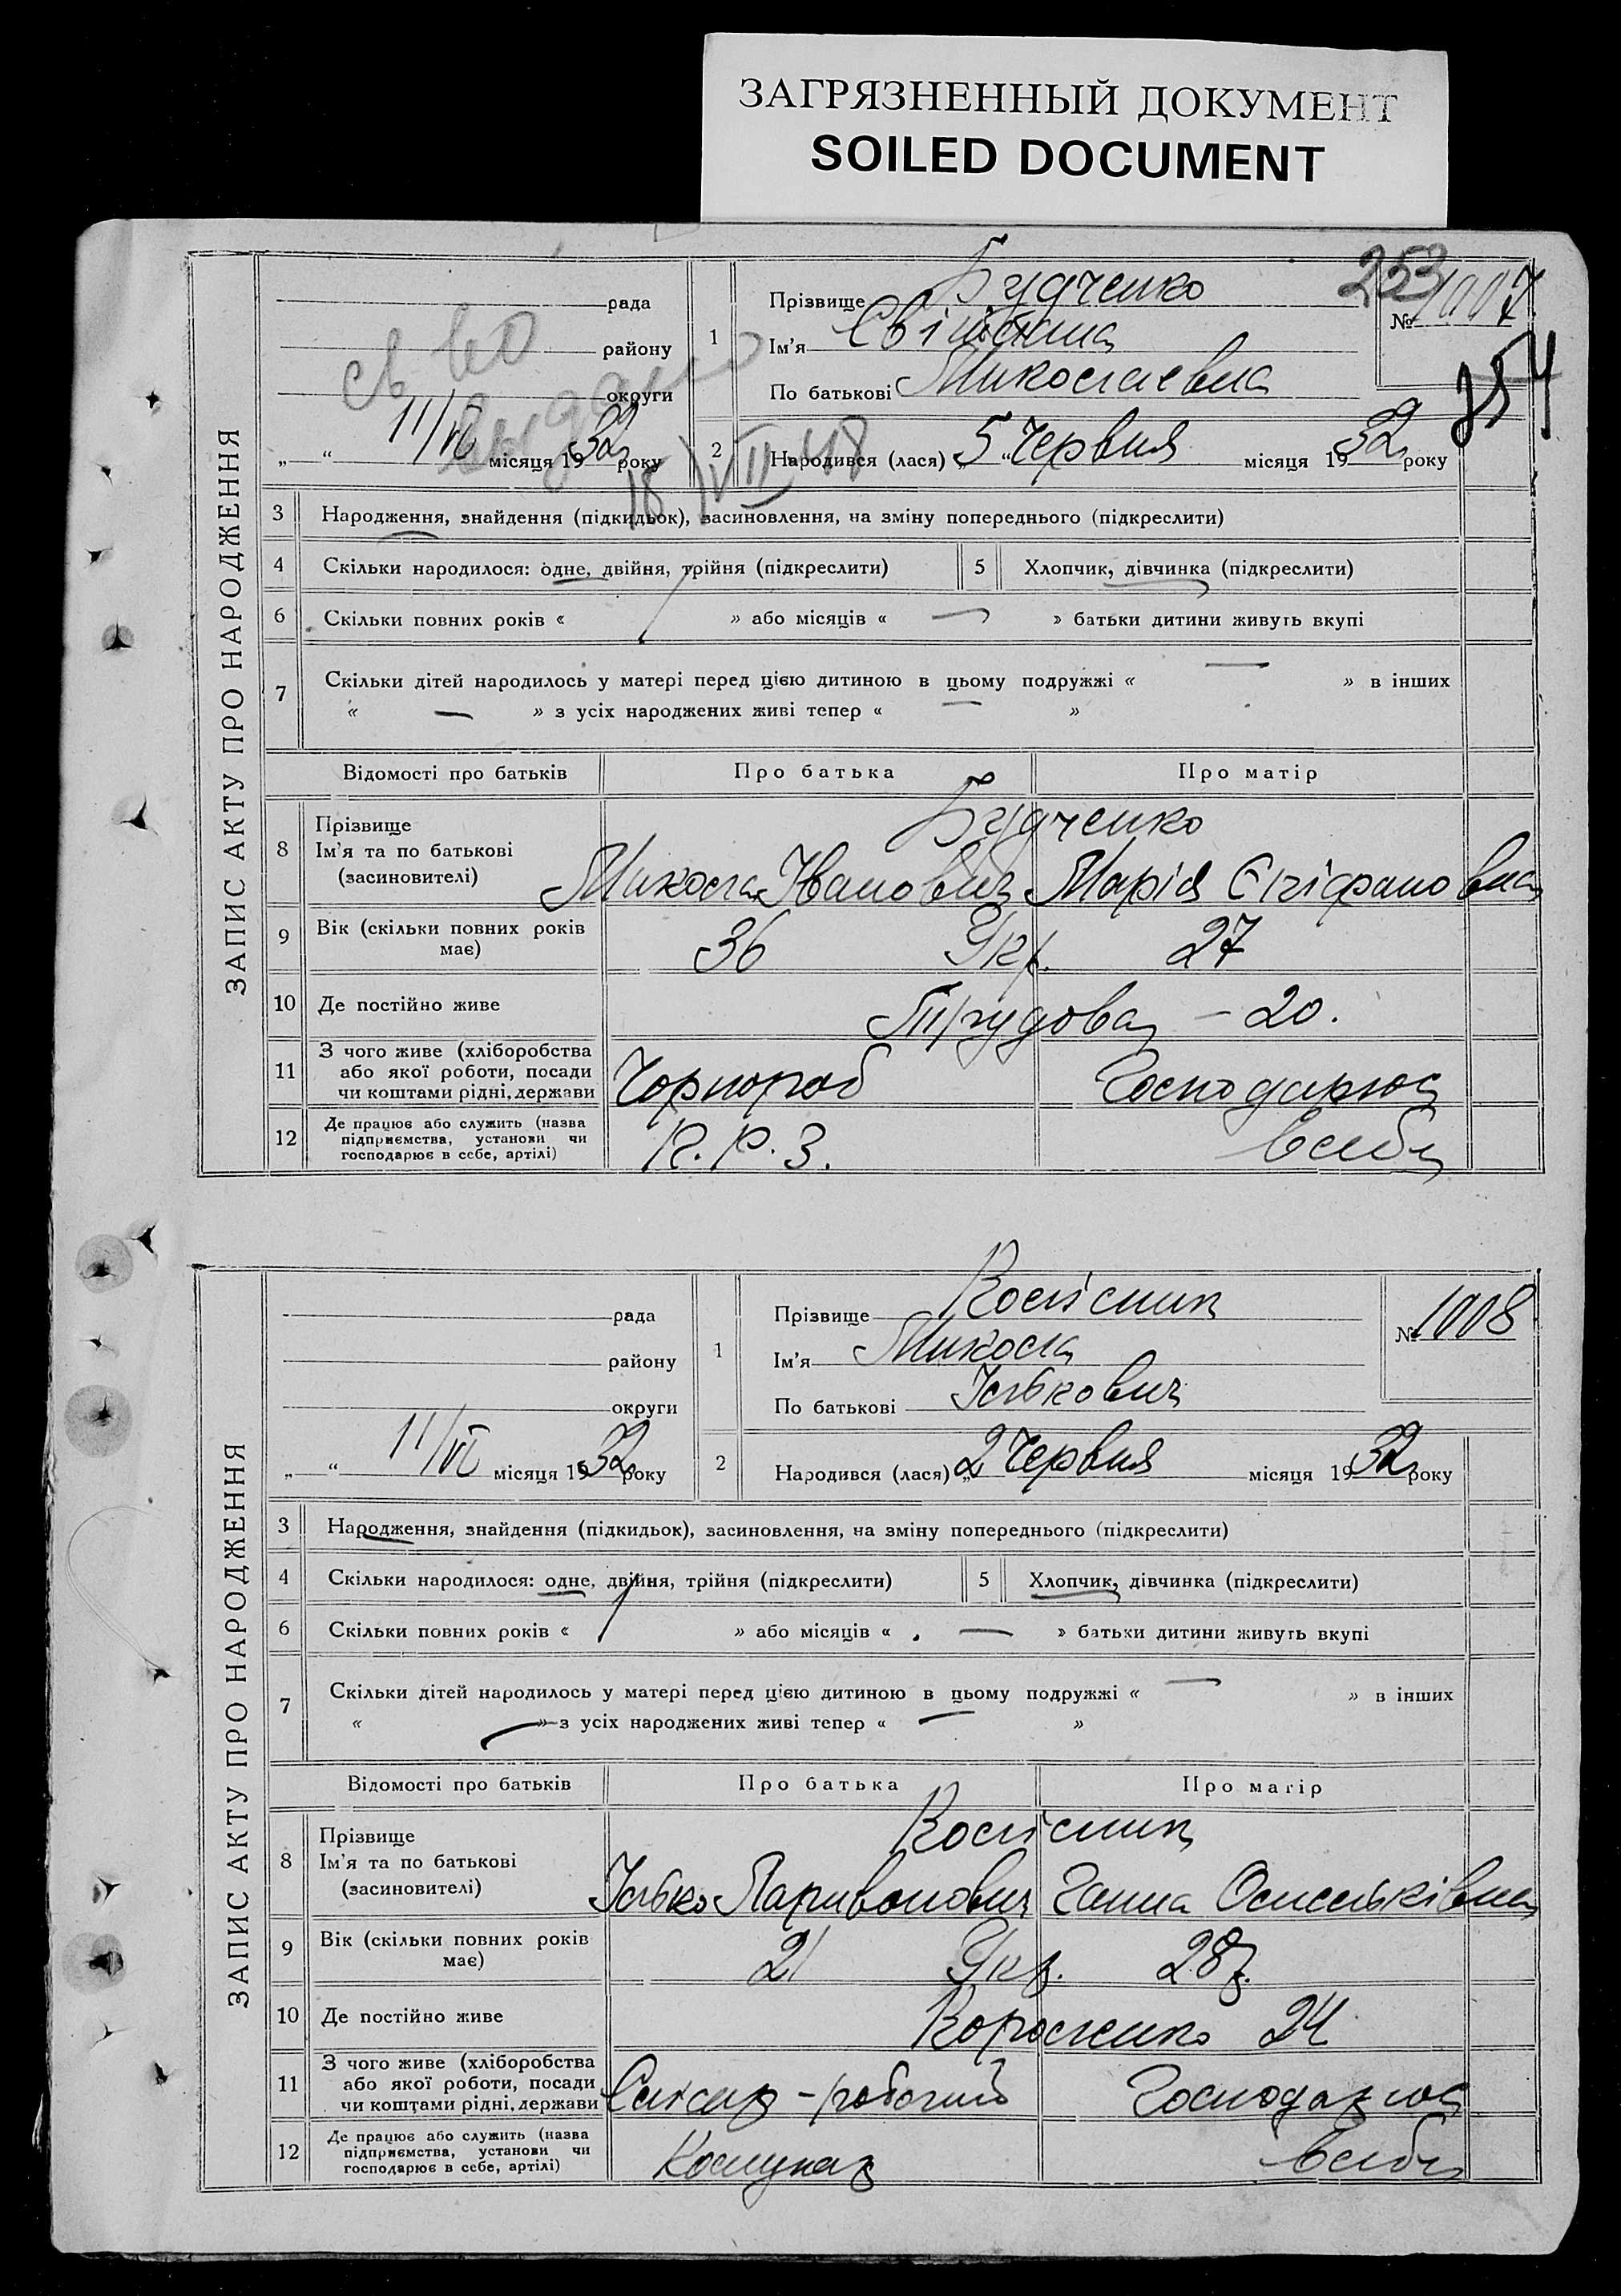 ЗАГРЯЗНЕННЫЙ ДОКУМЕНТ
SOILED DOCUMENT
ЗАПИС АКТУ ПРО НАРОДЖЕННЯ
253
№ 1007
254
рада
району
округи
св во
видано
18/VII 48
„ “ 11/VI місяця 1932 року
1
Прізвище Будченко
Ім'я Світлана
По батькові Миколаєвна
2
Народився (лася) „5“ Червня місяця 1932 року
3 Народження, знайдення (підкидьок), засиновлення, на зміну попереднього (підкреслити)
4 Скільки народилося: одне, двійня, трійня (підкреслити) 5 Хлопчик, дівчинка (підкреслити)
6 Скільки повних років « / » або місяців « — » батьки дитини живуть вкупі
7 Скільки дітей народилось у матері перед цією дитиною в цьому подружжі « — » в інших
« — » з усіх народжених живі тепер « — »
Відомості про батьків Про батька Про матір
8 Прізвище
Ім'я та по батькові
(засиновителі)
Будченко
Микола Іванович Марія Єпіфановна
9 Вік (скільки повних років
має)
36 Укр. 27
10 Де постійно живе Трудова – 20.
11 З чого живе (хліборобства
або якої роботи, посади
чи коштами рідні, держави
Чорнороб Господарює
12 Де працює або служить (назва
підприємства, установи чи
господарює в себе, артілі)
К. Р. З. в себе
ЗАПИС АКТУ ПРО НАРОДЖЕННЯ
№ 1008
рада
району
округи
„ “ 11/VI місяця 1932 року
1
Прізвище Колісник
Ім'я Микола
По батькові Ількович
2
Народився (лася) „2 Червня місяця 1932 року
3 Народження, знайдення (підкидьок), засиновлення, на зміну попереднього (підкреслити)
4 Скільки народилося: одне, двійня, трійня (підкреслити) 5 Хлопчик, дівчинка (підкреслити)
6 Скільки повних років « / » або місяців « — » батьки дитини живуть вкупі
7 Скільки дітей народилось у матері перед цією дитиною в цьому подружжі « — » в інших
« — » з усіх народжених живі тепер « — »
Відомості про батьків Про батька Про матір
8 Прізвище
Ім'я та по батькові
(засиновителі)
Колісник
Ілько Ларивонович Ганна Омельківна
9 Вік (скільки повних років
має)
21 Укр. 28р.
10 Де постійно живе Короленко 24
11 З чого живе (хліборобства
або якої роботи, посади
чи коштами рідні, держави
Слюсар - робочий Господарює
12 Де працює або служить (назва
підприємства, установи чи
господарює в себе, артілі)
Комунар в себе